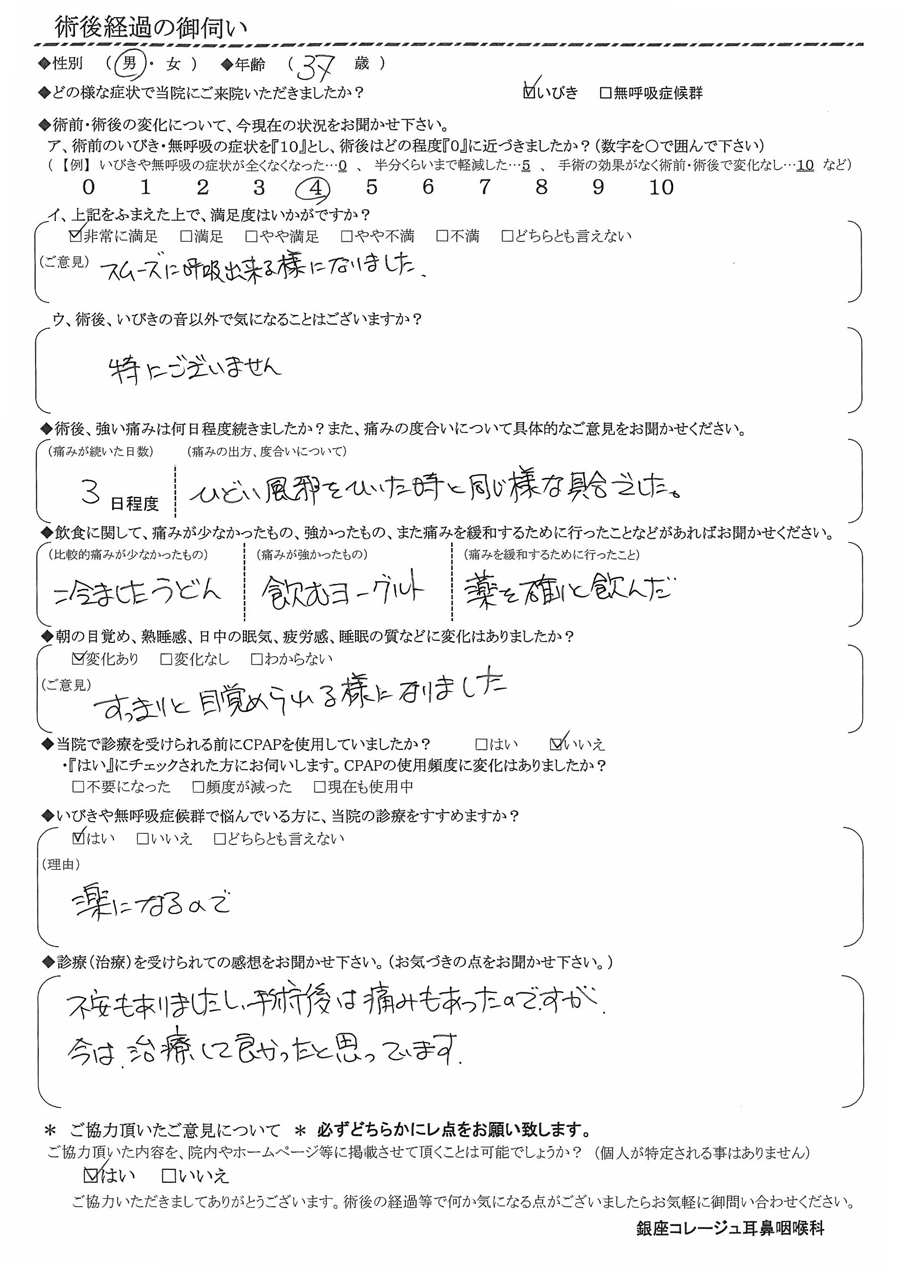 術後経過の御伺い
◆性別 (男・女) ◆年齢 (37歳)
◆どの様な症状で当院にご来院いただきましたか? ☑いびき □無呼吸症候群
◆術前・術後の変化について、今現在の状況をお聞かせ下さい。
ア、術前のいびき・無呼吸の症状を『10』とし、術後はどの程度『0』に近づきましたか?(数字を○で囲んで下さい)
(【例】いびきや無呼吸の症状が全くなくなった…0 、 半分くらいまで軽減した…5 、 手術の効果がなく術前・術後で変化なし…10 など)
0 1 2 3 4 5 6 7 8 9 10
イ、上記をふまえた上で、満足度はいかがですか?
☑非常に満足 □満足 □やや満足 □やや不満 □不満 □どちらとも言えない
(ご意見) スムーズに呼吸出来る様になりました.
ウ、術後、いびきの音以外で気になることはございますか?
特にございません
◆術後、強い痛みは何日程度続きましたか?また、痛みの度合いについて具体的なご意見をお聞かせください。
(痛みが続いた日数) (痛みの出方、度合いについて)
3日程度 ひどい風邪をひいた時と同じ様な具合でした。
◆飲食に関して、痛みが少なかったもの、強かったもの、また痛みを緩和するために行ったことなどがあればお聞かせください。
(比較的痛みが少なかったもの) (痛みが強かったもの) (痛みを緩和するために行ったこと)
冷ましたうどん 飲むヨーグルト 薬を確りと飲んだ
◆朝の目覚め、熟睡感、日中の眠気、疲労感、睡眠の質などに変化はありましたか?
☑変化あり □変化なし □わからない
(ご意見) すっきりと目覚められる様になりました
◆当院で診療を受けられる前にCPAPを使用していましたか? □はい ☑いいえ
・『はい』にチェックされた方にお伺いします。CPAPの使用頻度に変化はありましたか?
□不要になった □頻度が減った □現在も使用中
◆いびきや無呼吸症候群で悩んでいる方に、当院の診療をすすめますか?
☑はい □いいえ □どちらとも言えない
(理由)
楽になるので
◆診療(治療)を受けられての感想をお聞かせ下さい。(お気づきの点をお聞かせ下さい。)
不安もありましたし、手術後は痛みもあったのですが、
今は、治療して良かったと思っています.
＊ ご協力頂いたご意見について ＊ 必ずどちらかにレ点をお願い致します。
ご協力頂いた内容を、院内やホームページ等に掲載させて頂くことは可能でしょうか? (個人が特定される事はありません)
☑はい □いいえ
ご協力いただきましてありがとうございます。術後の経過等で何か気になる点がございましたらお気軽に御問い合わせください。
銀座コレージュ耳鼻咽喉科